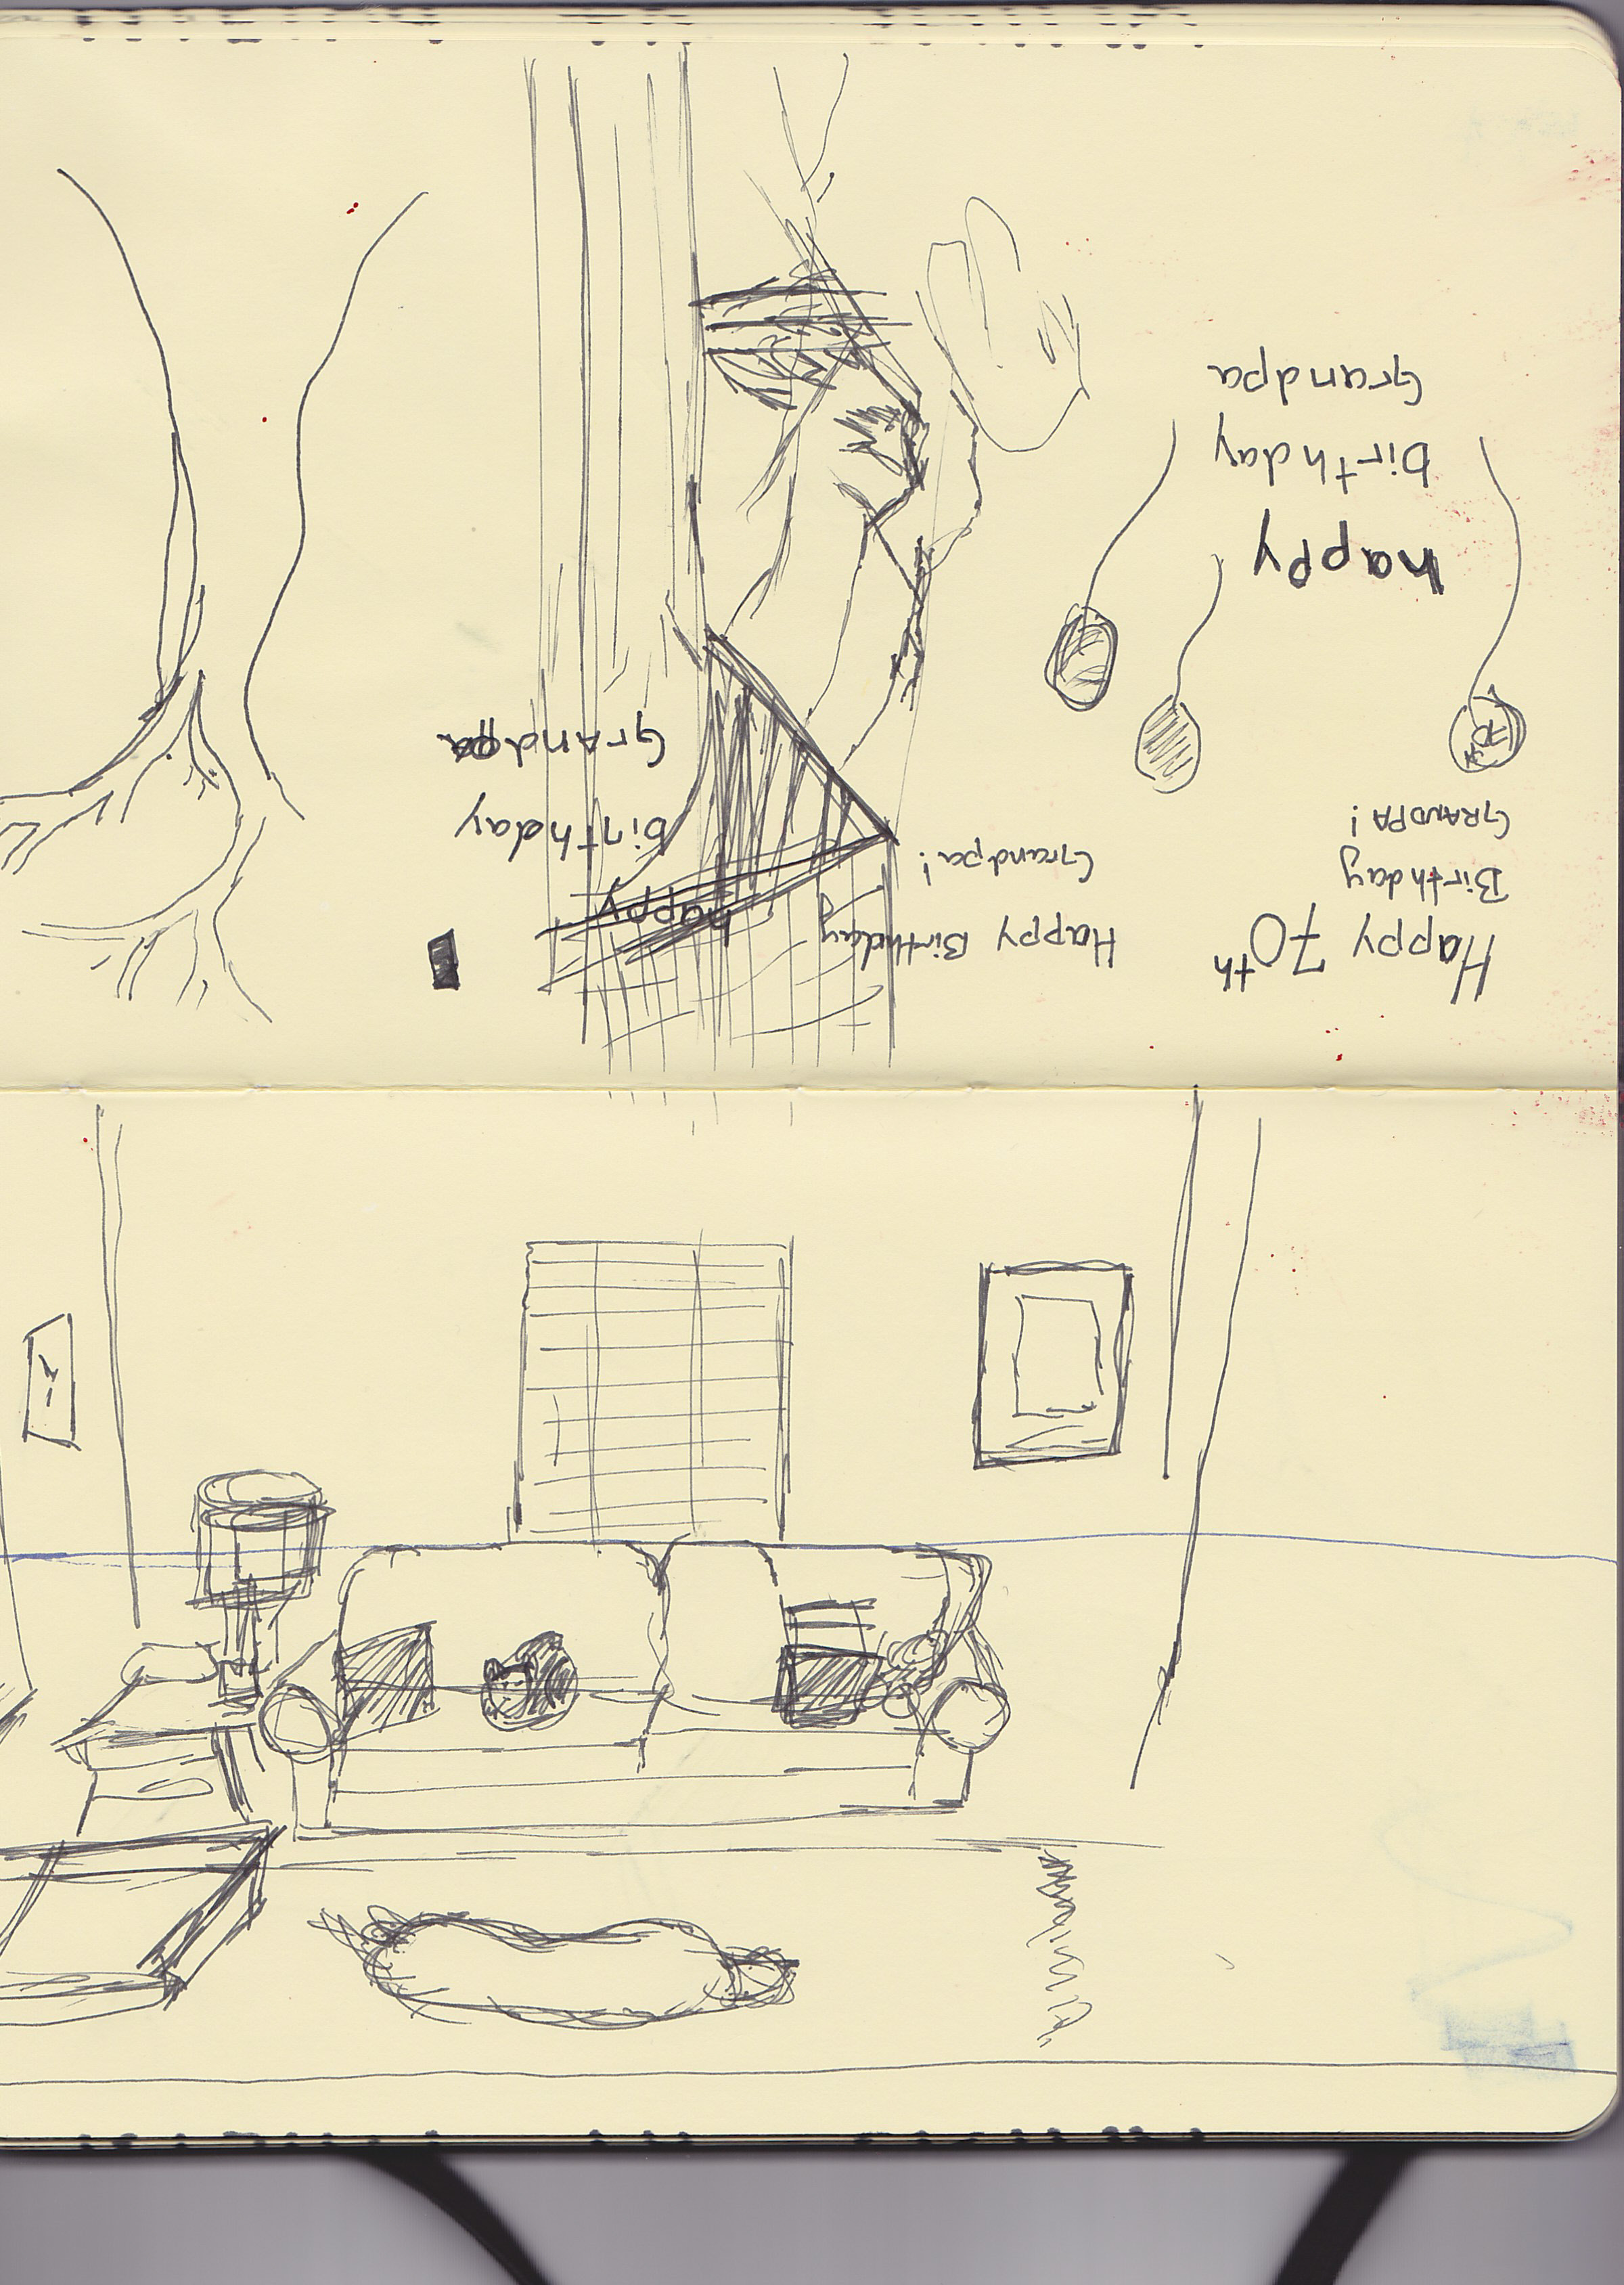 Happy 70th
Birthday
GRANDPA!
Happy Birthday
Grandpa!
happy
birthday
Grandpa
happy
birthday
Grandpa